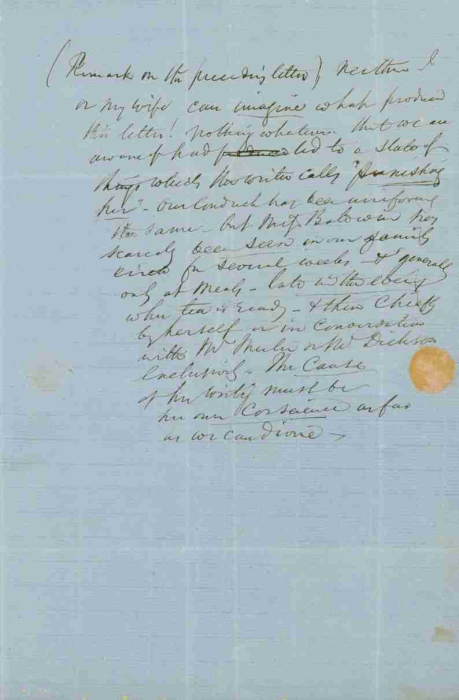 (Remark on the preceding letter) Neither I
or my wife can imagine what produced
this letter! Nothing whatever that we are
aware of had produced led to a state of
things which the writer calls "punishing
her" - our conduct has been uniformly
the same - but Miss Baldwin has
scarcely been seen in our family
circle for several weeks - & generally
only at meals - late in the evening
when tea is ready - & then chiefly
by herself or in conversation
with Mr or Mr Dickson
exclusively - The cause
of her writing must be
her own conscience as far
as we can divine -